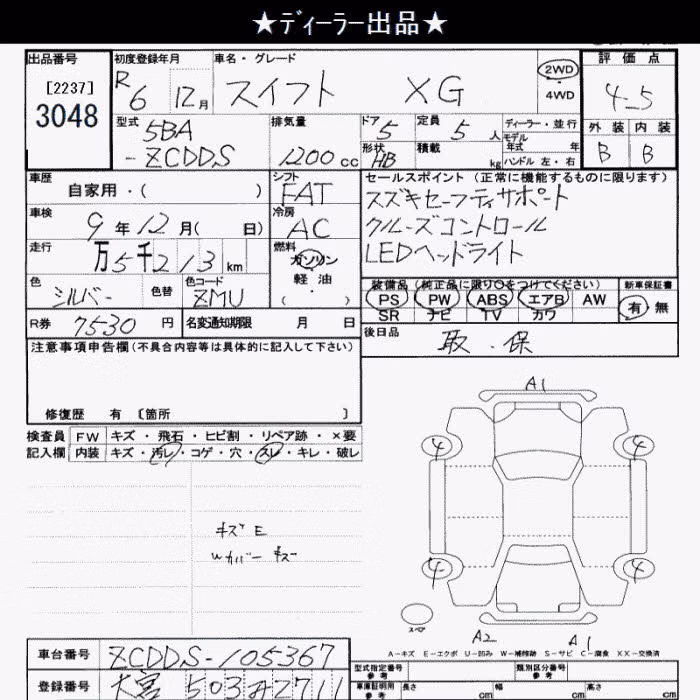 ★ディーラー出品★
出品番号 初度登録年月 車名・グレード 評価点
[2237] R6 12月 スイフト XG 2WD ・ 4WD 4.5
3048
型式 排気量 ドア 定員 ディーラー・並行 外装 内装
5BA 5 5人 モデル 年式 年 B B
-ZCDDS 1200cc 形状 HB 積載 kg ハンドル 左・右
車歴 シフト セールスポイント (正常に機能するものに限ります)
自家用・( ) FAT スズキセーフティサポート
車検 冷房 クルーズコントロール
9年12月( 日) AC LEDヘッドライト
走行 燃料
万5千213km ガソリン
色 色替 色コード 軽油 装備品(純正品に限り○をつけてください) 新車保証書
シルバー ZMU ( ・ ) PS PW ABS エアB AW 有・無
SR ナビ TV カワ
R券 7530円 名変通知期限 月 日 後日品
取.保
注意事項申告欄(不具合内容等は具体的に記入して下さい)
修復歴 有 〔箇所 〕
検査員 FW キズ・飛石・ヒビ割・リペア跡・×要
記入欄 内装 キズ・汚レ・コゲ・穴・スレ・キレ・破レ
A1
4 4
キズ E
Wカバーキズ
4 4
スペア
A2 A1
A-キズ E-エクボ U-凹み W-補修跡 S-サビ C-腐食 XX-交換済
車台番号 ZCDDS-105367
型式指定番号 参考 類別区分番号 参考
登録番号 大宮 503 2711
車庫証明用 参考 長さ cm 幅 cm 高さ cm